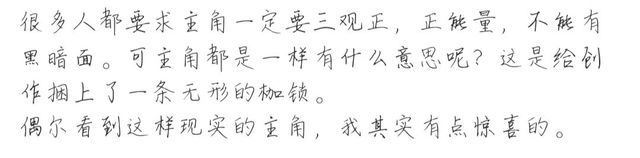 很多人都要求主角一定要三观正，正能量，不能有
黑暗面。可主角都是一样有什么意思呢？这是给创
作捆上了一条无形的枷锁。
偶尔看到这样现实的主角，我其实有点惊喜的。